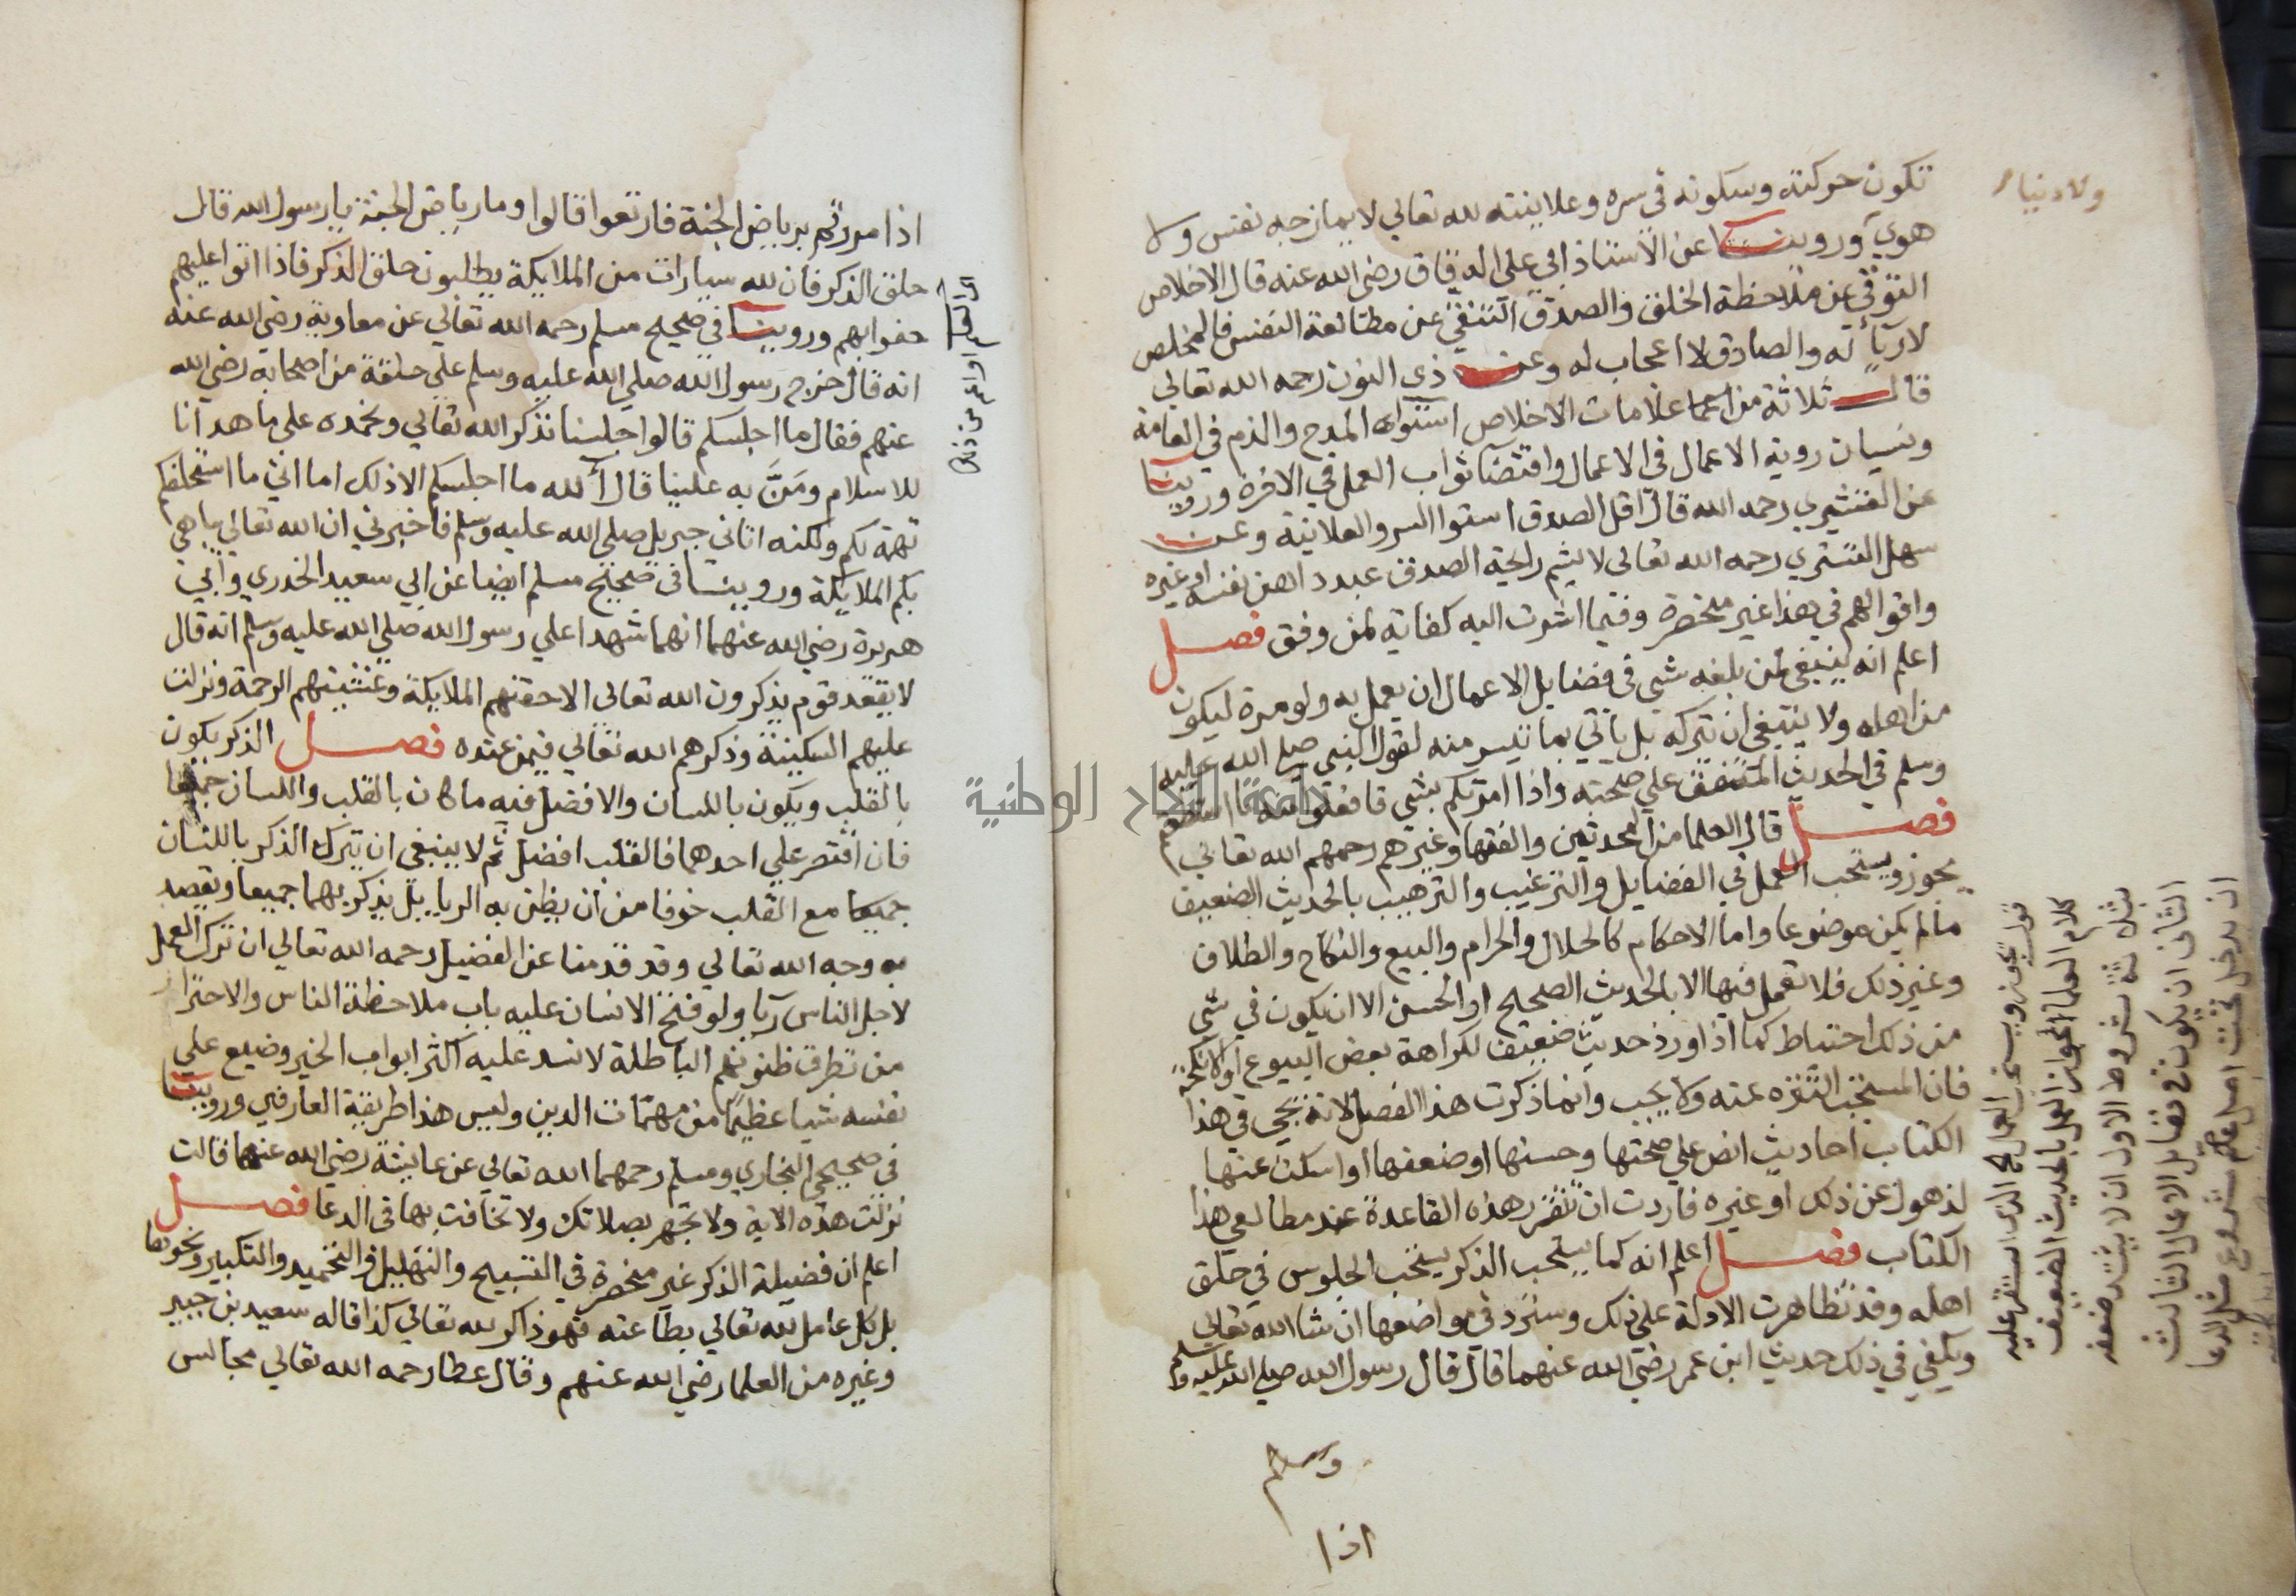 تكون حركته وسكونه في سره وعلانيته لله تعالي لا يمازجه نفس ولا
ولا دنيا
هوي وروينا عن الاستاذ ابي علي الدقاق رضي الله عنه قال الاخلاص
التوقي عن ملاحظة الخلق والصدق التنقي عن مطالعة النفس فالمخلص
لا ريآ له والصادق لا اعجاب له وعن ذي النون رحمه الله تعالي
قال ثلاثة من علامات الاخلاص استوا المدح والذم في العامة
ونسيان روية الاعمال في الاعمال واقتضا ثواب العمل في الاخرة وروينا
عن القشيري رحمه الله قال اقل الصدق استوا السر والعلانية وعن
سهل التستري رحمه الله تعالي لا يشم رايحة الصدق عبد داهن نفسه او غيره
واقوالهم في هذا غير منحصرة وفيما اشرت اليه كفاية لمن وفق فصل
اعلم انه ينبغي لمن بلغه شي في فضايل الاعمال ان يعمل به ولو مرة ليكون
من اهله ولا ينبغي ان تتركه بل ياتي بما تيسر منه لقول النبي صلي الله عليه
وسلم في الحديث المتفق علي صحته واذا امرتكم بشي فافعلوا منه ما استطعتم
فصل قال العلما من المحدثين والفقها وغيرهم رحمهم الله تعالي
يجوز ويستحب العمل في الفضايل والترغيب والترهيب بالحديث الضعيف
ما لم يكن موضوعا واما الاحكام كالحلال والحرام والبيع والنكاح والطلاق
وغير ذلك فلا تعمل فيها الا بالحديث الصحيح او الحسن الا ان يكون في شي
من ذلك احتياط كما اذا ورد حديث ضعيف لكراهة بعض البيوع او الانكحة
فان المستحب التنزه عنه ولا يجب وانما ذكرت هذا الفصل لانه يجي في هذا
الكتاب احاديث انص علي صحتها وحسنها او ضعفها او اسكت عنها
لذهول عن ذلك او غيره فاردت ان تتقرر هذه القاعدة عند مطالعي هذا
الكتاب فصل اعلم انه كما يستحب الذكر يستحب الجلوس في حلق
اهله وقد تظاهرت الادلة علي ذلك وسترد في مواضعها ان شا الله تعالي
ويكفي في ذلك حديث ابن عمر رضي الله عنهما قال قال رسول الله صلي الله عليه وسلم
وسلم
اذا
كلام العلما الجواز العمل بالحديث الضعيف
بثلاثة شروط الاول ان لا يشتد ضعفه
الثاني ان يكون في فضايل الاعمال الثالث
ان يدخل تحت اصل
اذا مررتم برياض الجنة فارتعوا قالوا وما رياض الجنة يا رسول الله قال
حلق الذكر فان لله سيارات من الملايكة يطلبون حلق الذكر فاذا اتوا عليهم
حفوا بهم وروينا في صحيح مسلم رحمه الله تعالي عن معاوية رضي الله عنه
انه قال خرج رسول الله صلي الله عليه وسلم علي حلقة من اصحابه رضي الله
عنهم فقال ما اجلسكم قالوا جلسنا نذكر الله تعالي ونحمده علي ما هدانا
للاسلام ومَنَّ به علينا قال آلله ما اجلسكم الا ذلك اما اني ما استحلفكم
تهمة لكم ولكنه اتاني جبريل صلي الله عليه وسلم فاخبرني ان الله تعالي يباهي
بكم الملايكة وروينا في صحيح مسلم ايضا عن ابي سعيد الخدري وابي
هريرة رضي الله عنهما انهما شهدا علي رسول الله صلي الله عليه وسلم انه قال
لا يقعد قوم يذكرون الله تعالي الا حفتهم الملايكة وغشيتهم الرحمة ونزلت
عليهم السكينة وذكرهم الله تعالي فيمن عنده فصل الذكر يكون
بالقلب ويكون باللسان والافضل فيه ما كان بالقلب واللسان جميعا
فان اقتصر علي احدهما فالقلب افضل ثم لا ينبغي ان يترك الذكر باللسان
جميعا مع القلب خوفا من ان يظن به الريا بل يذكر بهما جميعا ويقصد
به وجه الله تعالي وقد قدمنا عن الفضيل رحمه الله تعالي ان ترك العمل
لاجل الناس ريآ ولو فتح الانسان عليه باب ملاحظة الناس والاحتراز
من تطرق ظنونهم الباطلة لانسد عليه اكثر ابواب الخير وضيع علي
نفسه شيا عظيما من مهمات الدين وليس هذا طريقة العارفين وروينا
في صحيحي البخاري ومسلم رحمهما الله تعالي عن عايشة رضي الله عنها قالت
نزلت هذه الاية ولا تجهر بصلاتك ولا تخافت بها في الدعا فصل
اعلم ان فضيلة الذكر غير منحصرة في التسبيح والتهليل والتحميد والتكبير ونحوها
بل كل عامل لله تعالي بطاعته فهو ذاكر لله تعالي كذا قاله سعيد بن جبير
وغيره من العلما رضي الله عنهم وقال عطا رحمه الله تعالي مجالس
جامعة النجاح الوطنية